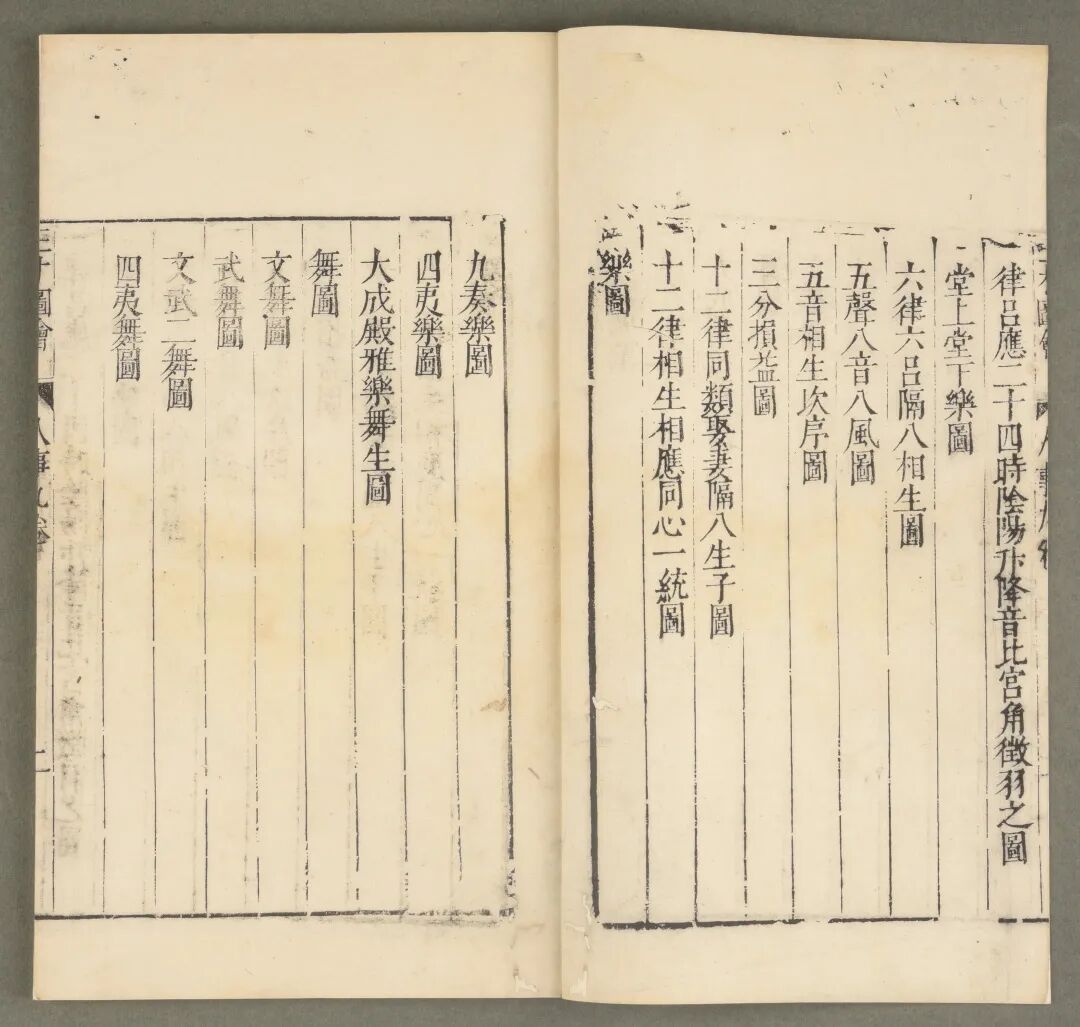 律吕應二十四時隂陽升降音比宫角徵羽之圖
堂上堂下樂圖
六律六吕隔八相生圖
五聲八音八風圖
五音相生次序圖
三分損益圖
十二律同類娶妻隔八生子圖
十二律相生相應同心一統圖
樂圖
九奏樂圖
四夷樂圖
大成殿雅樂舞生圖
舞圖
文舞圖
武舞圖
文武二舞圖
四夷舞圖
三才圖會 人事九卷 二